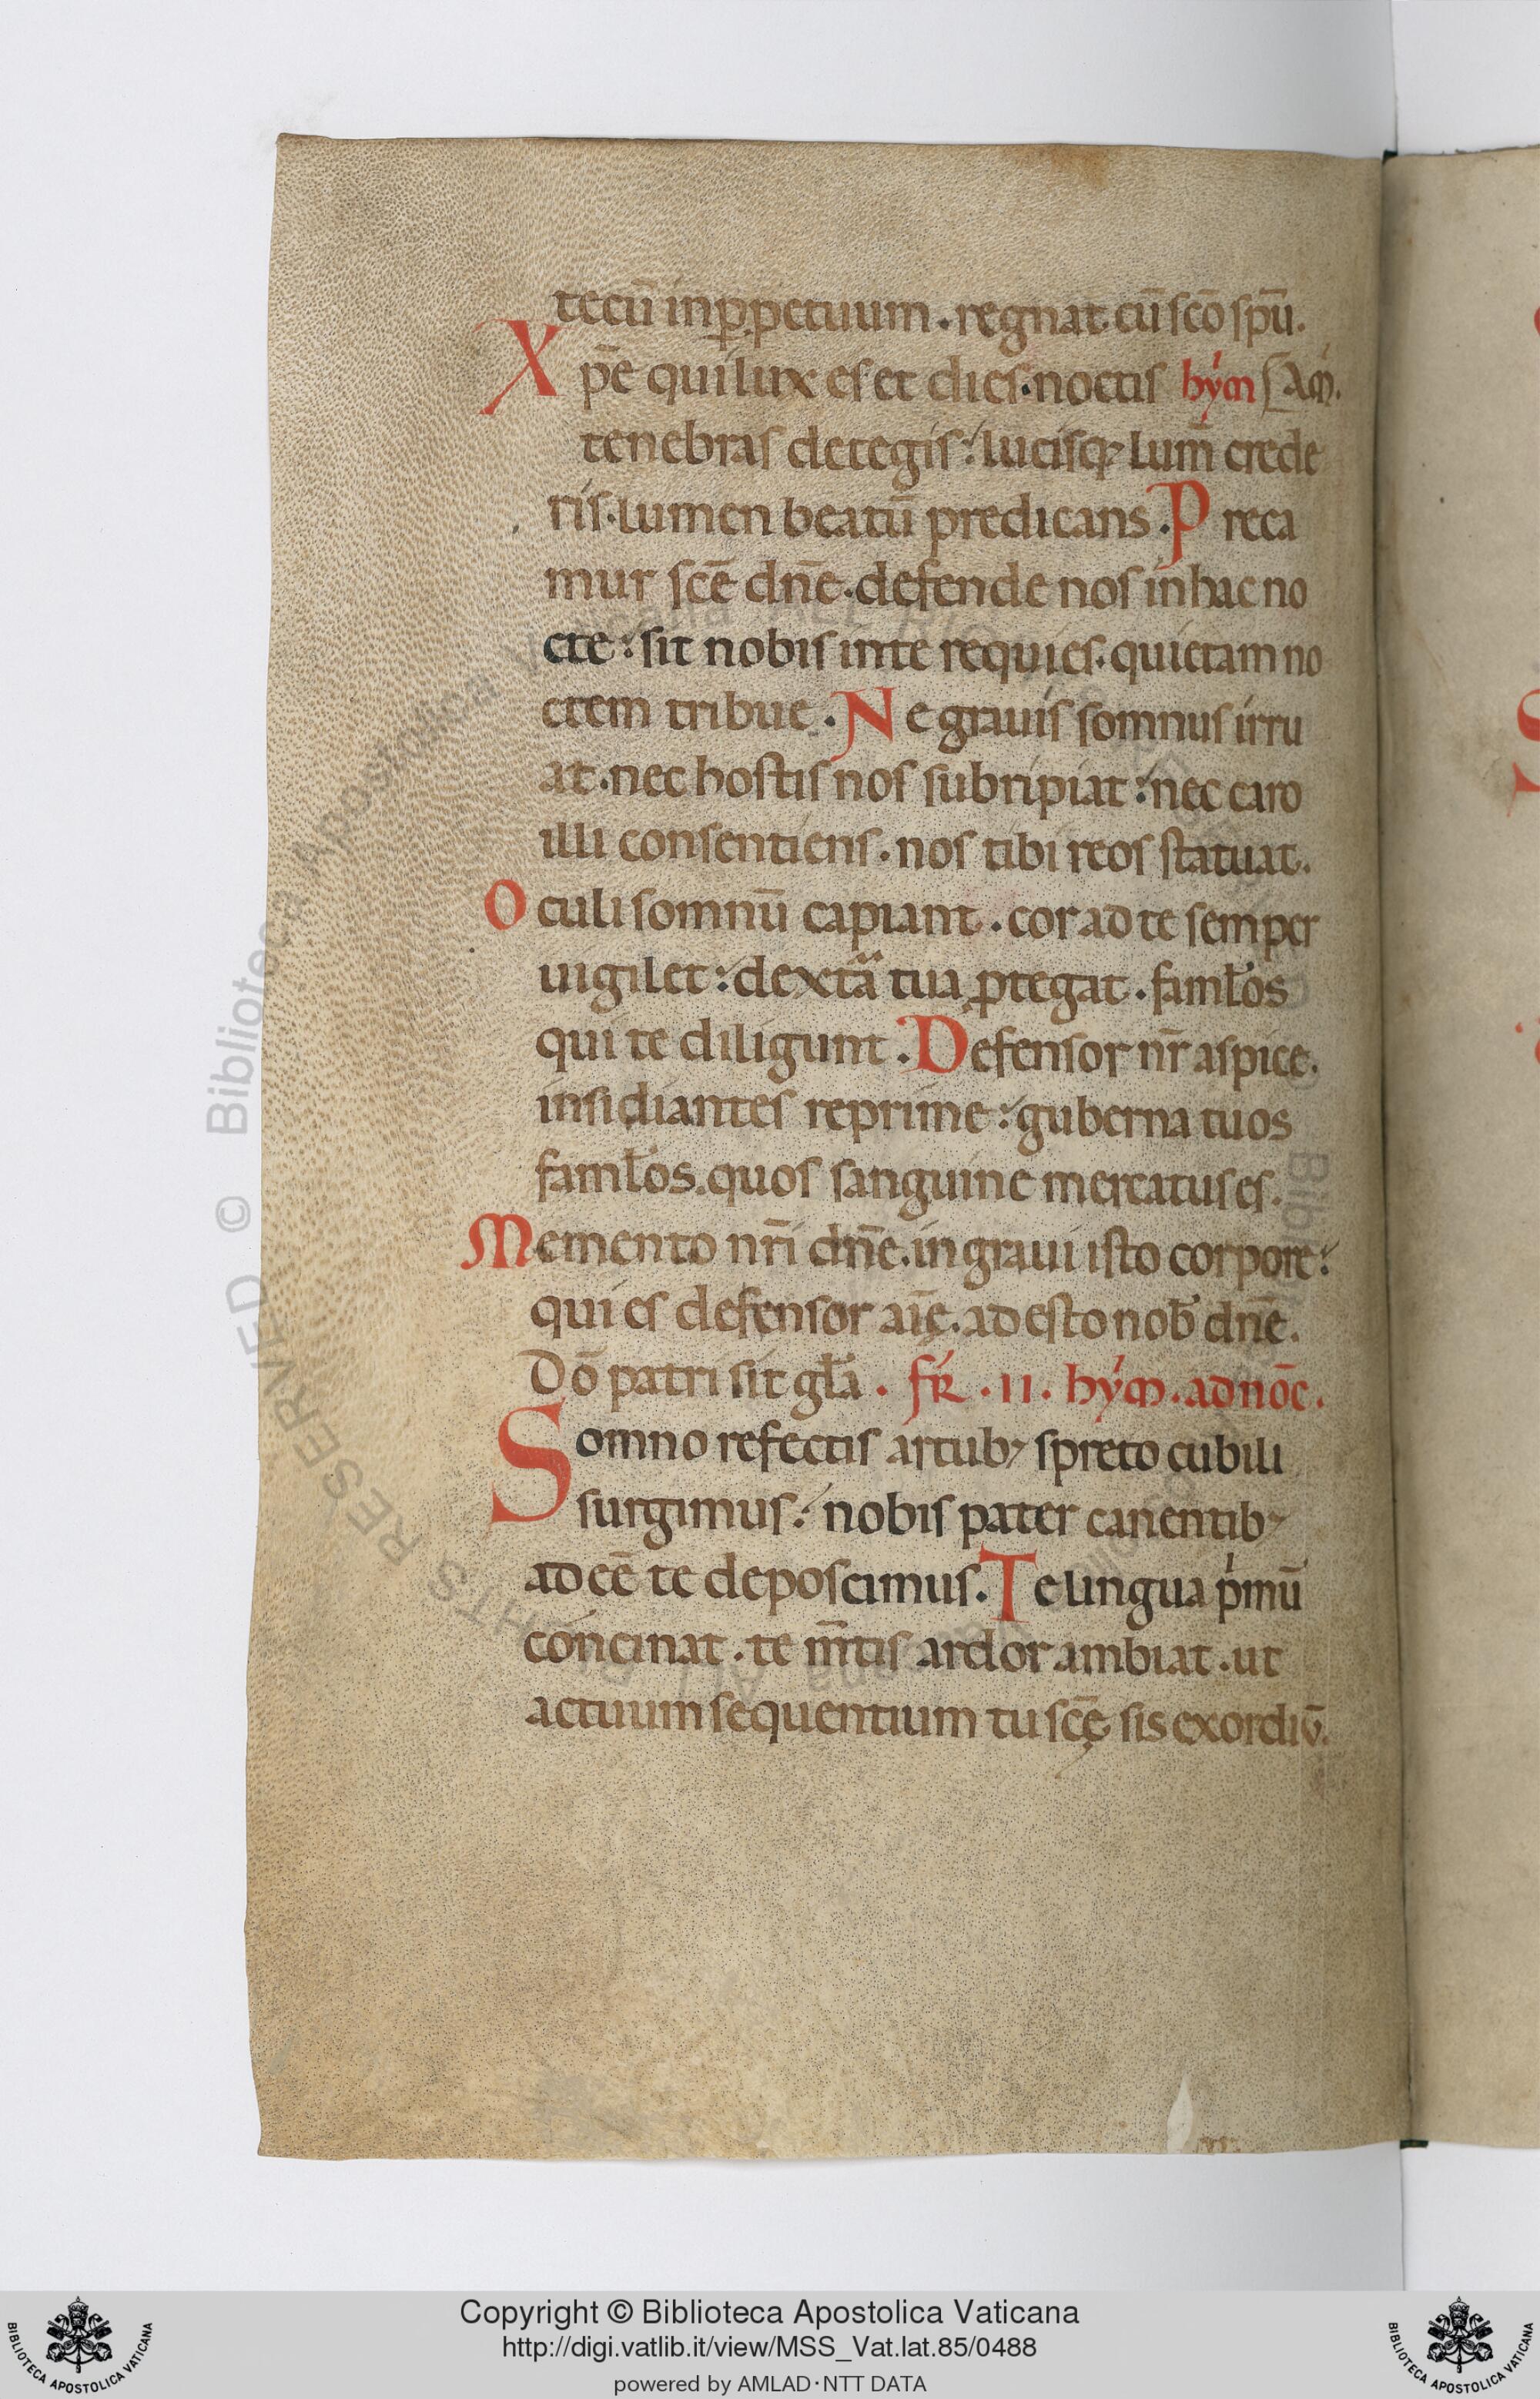 tecū inp̱petuum. regnat cū scō spū.
Xpē qui lux es et dies. noctis hym̄ Am̄.
tenebras detegis: lucisq; lum̄ crede
ris. lumen beatū predicans. Preca
mur scē dn̄e. defende nos in hac no
cte: sit nobis inte requies. quietam no
ctem tribue. Ne grauis somnus irru
at. nec hostis nos subripiat: nec caro
illi consentiens. nos tibi reos statuat.
Oculi somnū capiant. cor ad te semper
uigilet: dextā tua ꝓtegat. faml̄os
qui te diligunt. Defensor nr̄ aspice.
insidiantes reprime: guberna tuos
faml̄os. quos sanguine mercatus es.
Memento nr̄i dn̄e. in graui isto corpore:
qui es defensor aīę. ad esto nob̄ dn̄e.
Dō patri sit gl̄a. fr̄. II. hym̄. ad noc̄.
Somno refectis artub; spreto cubili
surgimus: nobis pater canentib;
ad eē te deposcimus. Te lingua pⁱmū
concinat. te m̄tis ardor ambiat. ut
actuum sequentium tu scę̄ sis exordiū.
Copyright © Biblioteca Apostolica Vaticana
http://digi.vatlib.it/view/MSS_Vat.lat.85/0488
powered by AMLAD·NTT DATA
BIBLIOTECA APOSTOLICA VATICANA
BIBLIOTECA APOSTOLICA VATICANA